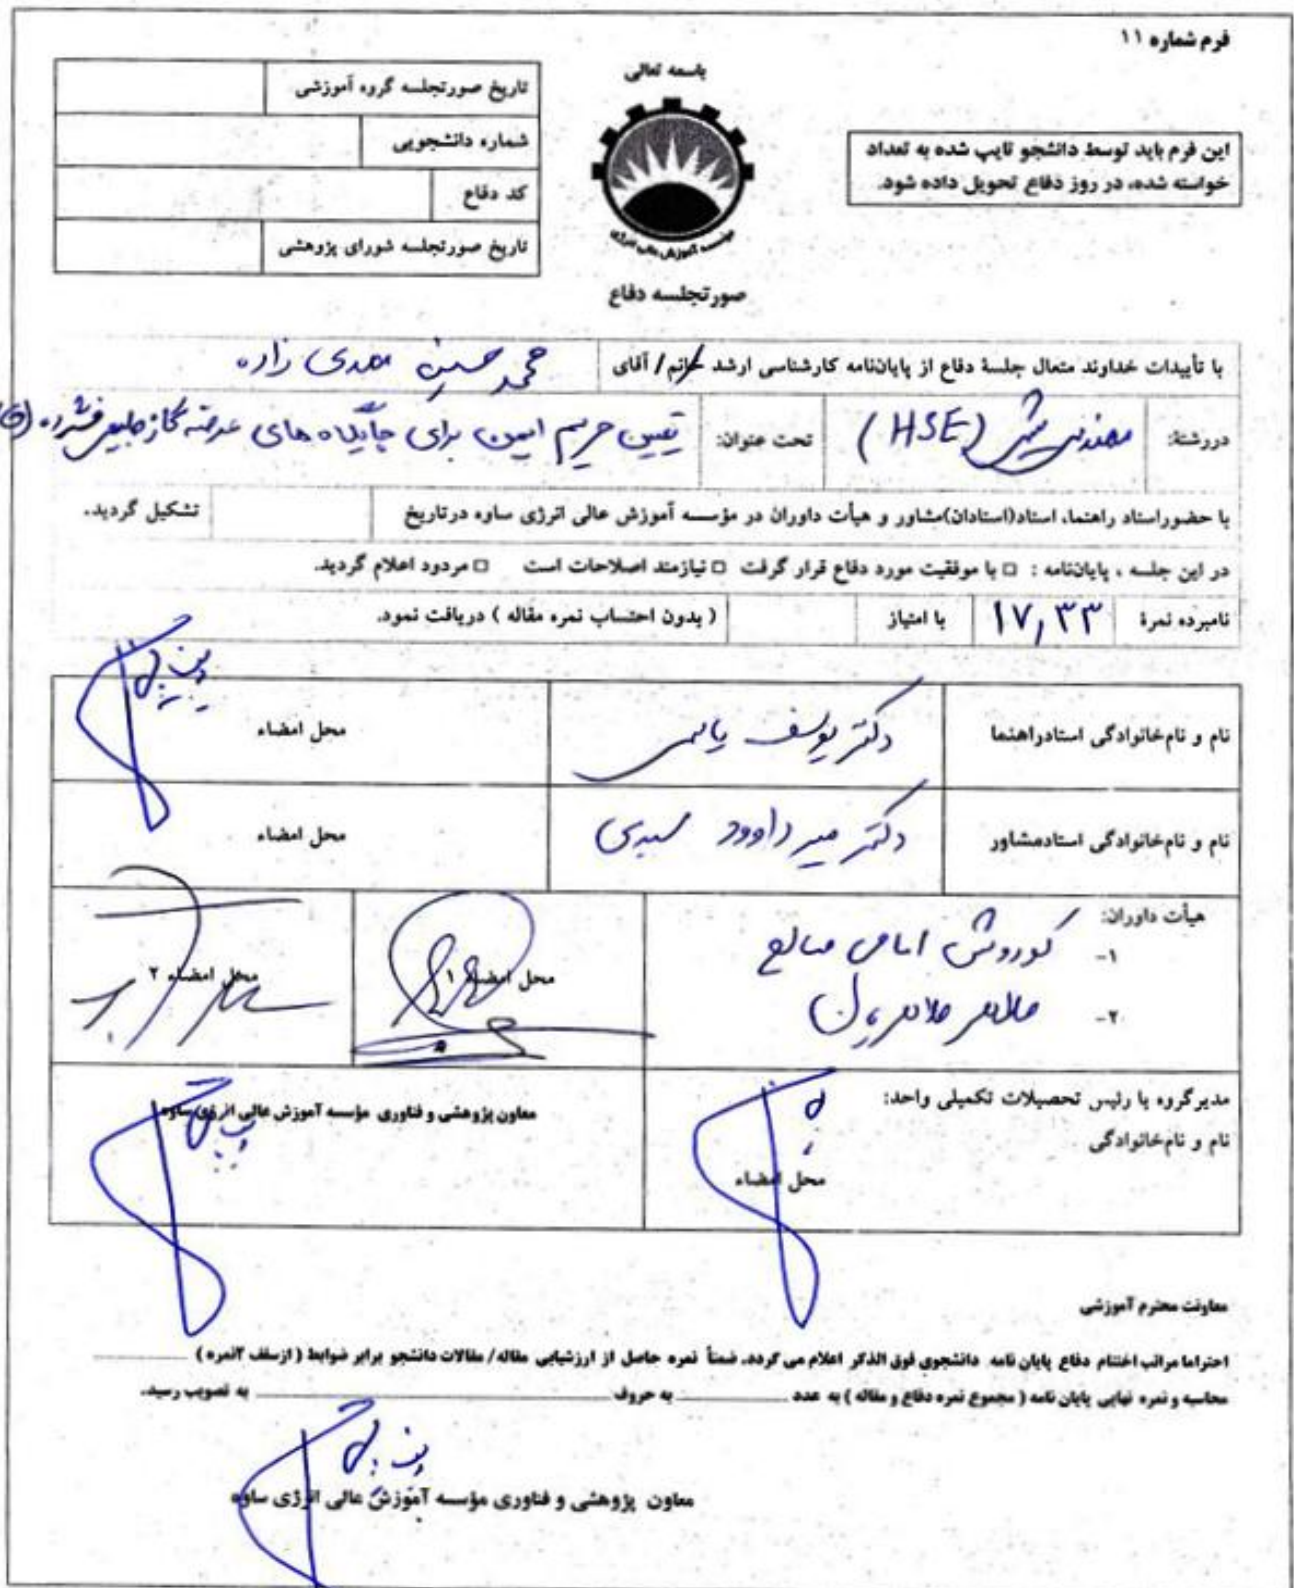 فرم شماره ۱۱
باسمه تعالی
این فرم باید توسط دانشجو تایپ شده به تعداد
خواسته شده، در روز دفاع تحویل داده شود.
تاریخ صورتجلسه گروه آموزشی
شماره دانشجویی
کد دفاع
تاریخ صورتجلسه شورای پژوهشی
موسسه آموزش عالی انرژی
صورتجلسه دفاع
با تأییدات خداوند متعال جلسهٔ دفاع از پایان‌نامه کارشناسی ارشد خانم / آقای محمد حسین مهدی زاده
دررشتهٔ: مهندسی شیمی (HSE) تحت عنوان: تعیین حریم ایمن برای جایگاه های عرضه گاز طبیعی فشرده
با حضوراستاد راهنما، استاد(استادان)مشاور و هیأت داوران در مؤسسه آموزش عالی انرژی ساوه درتاریخ تشکیل گردید.
در این جلسه ، پایان‌نامه : □ با موفقیت مورد دفاع قرار گرفت □ نیازمند اصلاحات است □ مردود اعلام گردید.
نامبرده نمرهٔ ۱۷٫۳۳ با امتیاز ( بدون احتساب نمره مقاله ) دریافت نمود.
نام و نام‌خانوادگی استادراهنما دکتر یوسف محل امضاء
نام و نام‌خانوادگی استادمشاور دکتر میر داوود سیدی محل امضاء
هیأت داوران:
۱- کوروش امامی صالح
۲-
محل امضاء ۱
محل امضاء ۲
مدیرگروه یا رئیس تحصیلات تکمیلی واحد:
نام و نام‌خانوادگی
محل امضاء
معاون پژوهشی و فناوری مؤسسه آموزش عالی انرژی ساوه
معاونت محترم آموزشی
احتراما مراتب اختتام دفاع پایان نامه دانشجوی فوق الذکر اعلام می گردد. ضمناً نمره حاصل از ارزشیابی مقاله/ مقالات دانشجو برابر ضوابط ( ازسقف ۲نمره ) ..............
محاسبه و نمره نهایی پایان نامه ( مجموع نمره دفاع و مقاله ) به عدد .............. به حروف .............................. به تصویب رسید.
معاون پژوهشی و فناوری مؤسسه آموزش عالی انرژی ساوه